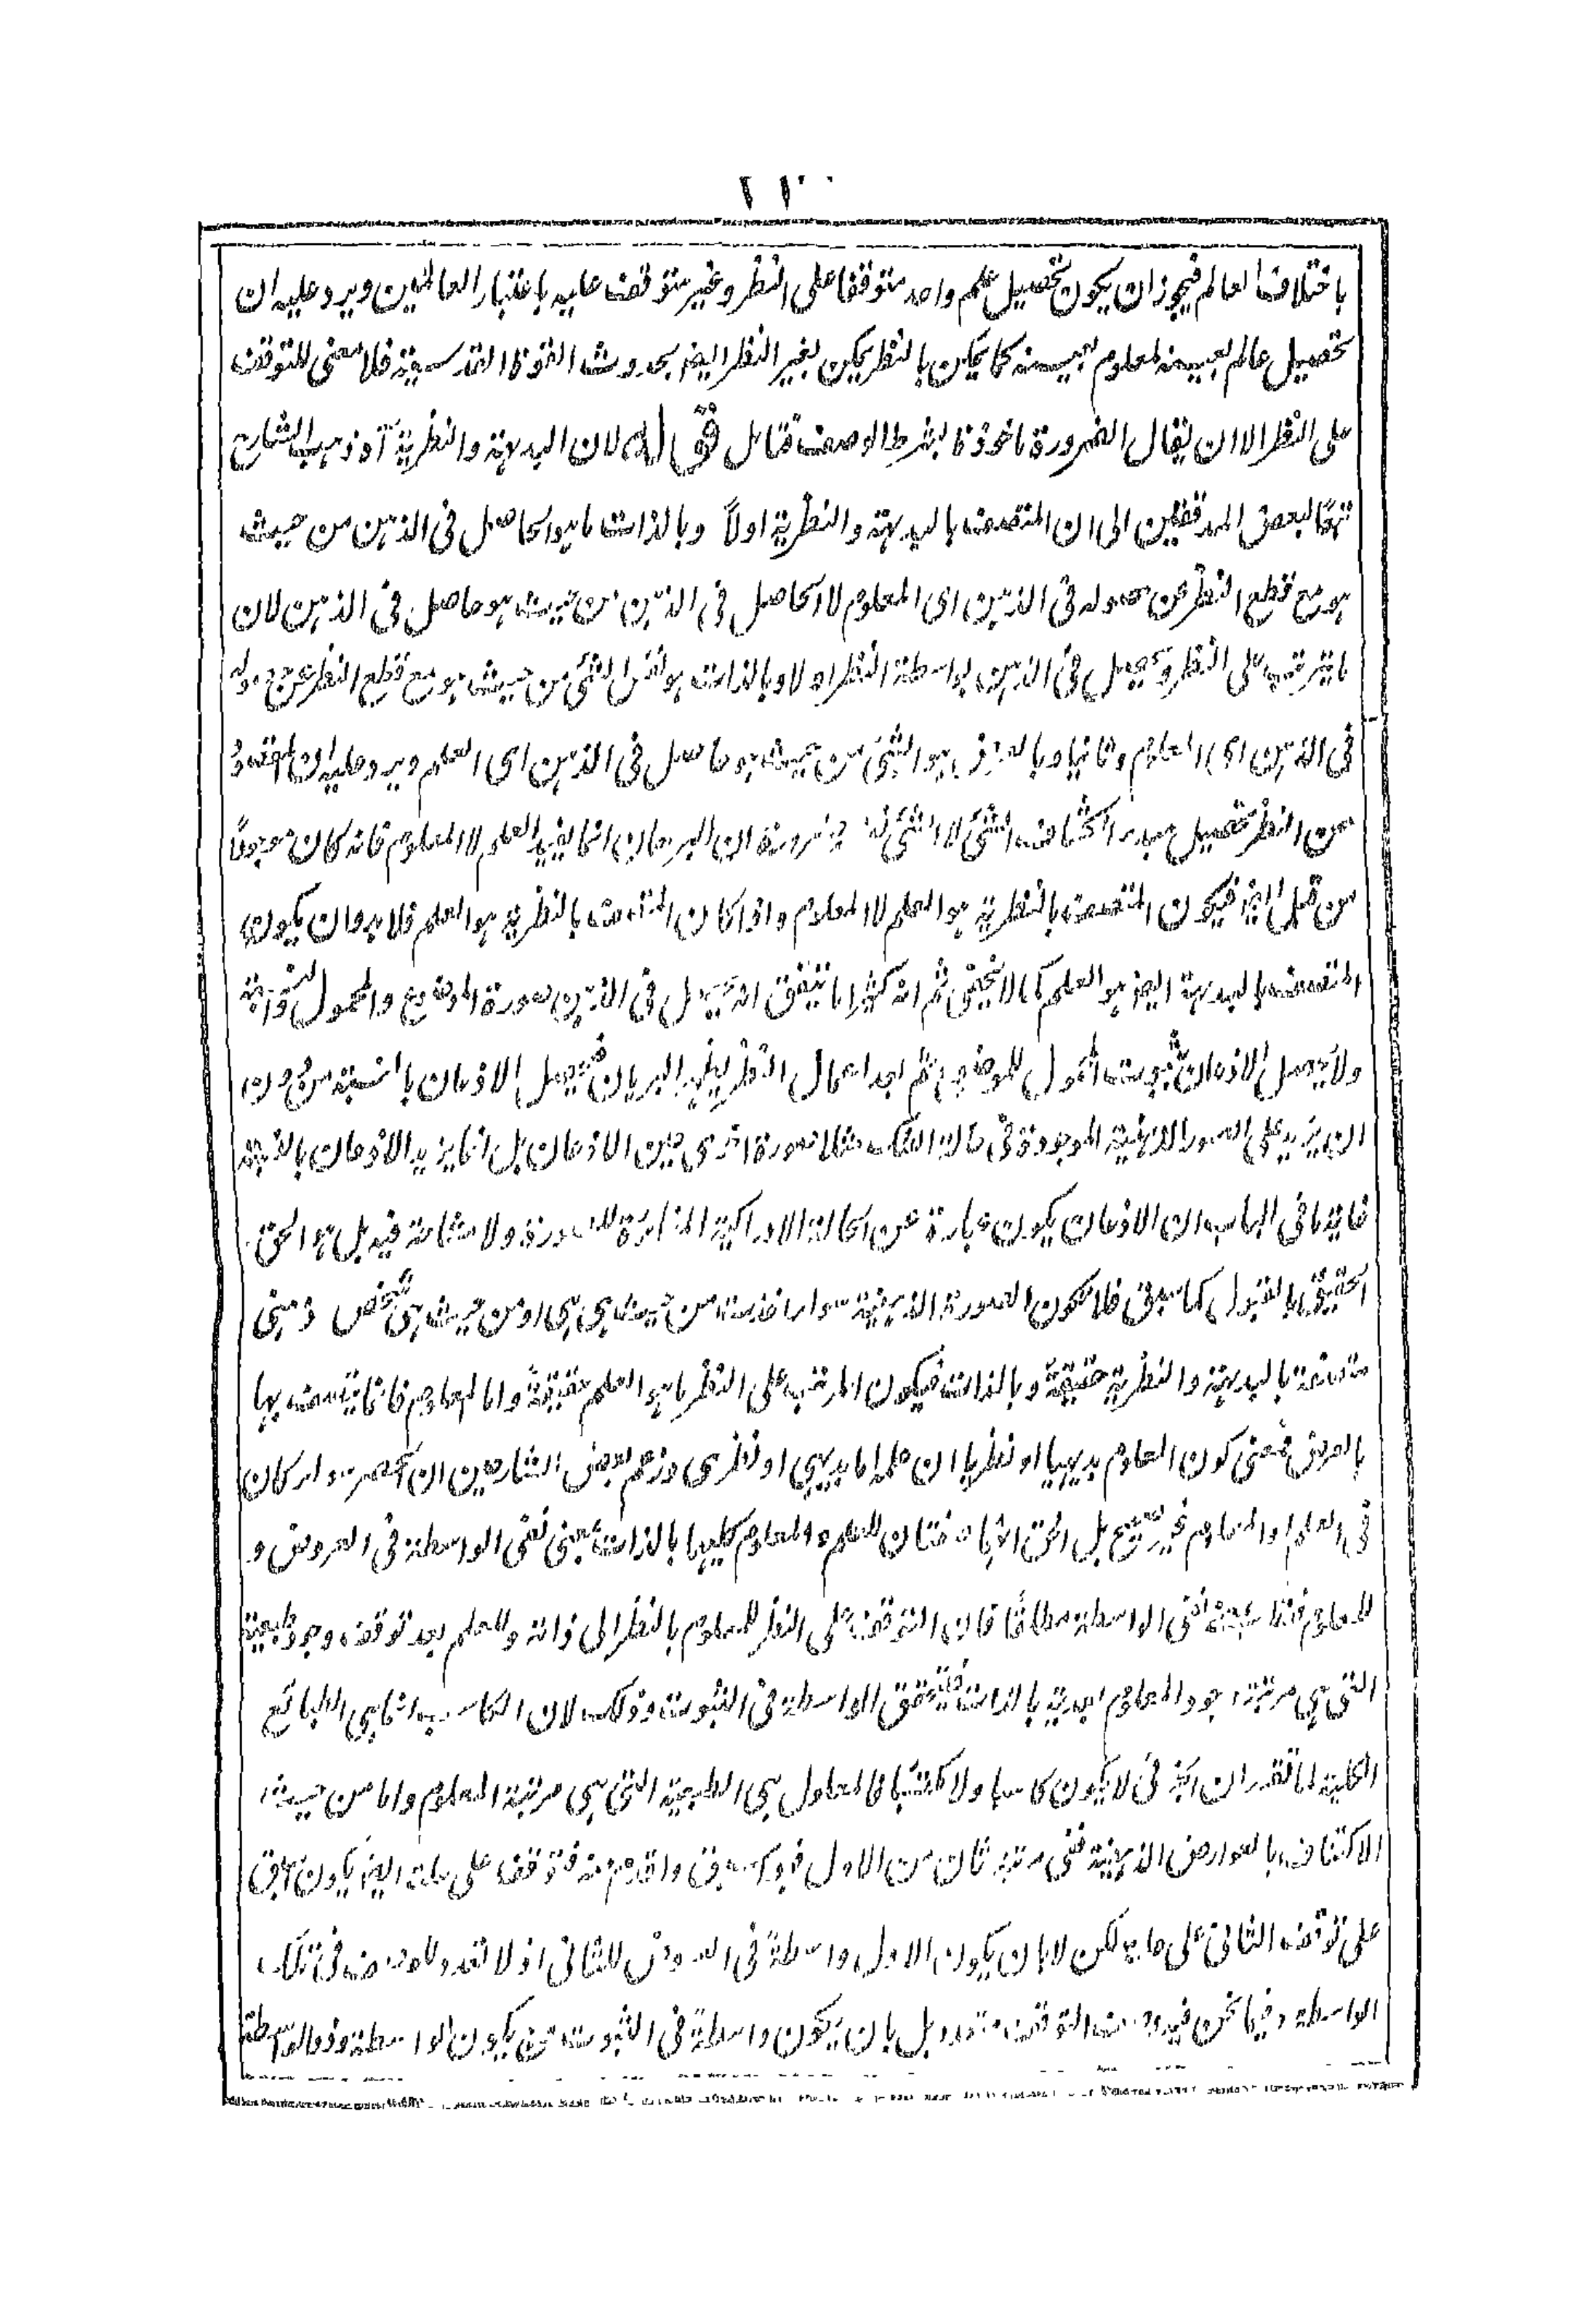 باختلاف العالم فيجوز ان يكون تحصيل علم واحد متوقفا على النظر وغير متوقف عليه باعتبار العالمين ويرد عليه ان
تحصيل عالم بعينه لمعلوم بعينه كما يمكن بالنظر يمكن بغير النظر ايضا بحدوث القوة القدسية فلا معنى للتوقف
على النظر الا ان يقال الضرورة ماخوذة بشرط الوصف فتامل قوله لان البديهة والنظرية آه ذهب الشارح
تبعا لبعض المدققين الى ان المتصف بالبديهة والنظرية اولاً وبالذات ما هو الحاصل فى الذهن من حيث
هو مع قطع النظر عن حصوله فى الذهن اى المعلوم لا الحاصل فى الذهن من حيث هو حاصل فى الذهن لان
ما يترتب على النظر ويحصل فى الذهن بواسطة النظر اولا وبالذات هو نفس الشئ من حيث هو مع قطع النظر عن حصوله
فى الذهن اى المعلوم وثانيا وبالعرض هو الشئ من حيث هو حاصل فى الذهن اى العلم ويرد عليه ان المقصود
من النظر تحصيل مبدء انكشاف الشئ لا الشئ ضرورة ان البرهان انما يفيد العلم لا المعلوم فانه كان موجودًا
من قبل ايضا فيكون المتصف بالنظرية هو العلم لا المعلوم واذا كان المتصف بالنظرية هو العلم فلا بد وان يكون
المتصف بالبديهة ايضا هو العلم كما لا يخفى ثم انه كثيرا ما يتفق انه يحصل فى الذهن صورة الموضوع والمحمول
ولا يحصل الاذعان بثبوت المحمول للموضوع ثم بعد اعمال النظر البرهان فيحصل الاذعان بالنسبة من دون
ان يزيد على الصور الذهنية الموجودة فى حالة الشك مثلا صورة اخرى حين الاذعان بل انما يزيد الاذعان بالنسبة
غاية ما فى الباب ان الاذعان يكون عبارة عن الحالة الادراكية المغايرة للصورة ولا شناعة فيه بل هو الحق
الحقيق بالقبول كما سبق فلا تكون الصورة الذهنية سواء اخذت من حيث هى هى او من حيث هى شخص ذهنى
متصفة بالبديهة والنظرية حقيقةً وبالذات فيكون المترتب على النظر ما هو العلم حقيقةً واما المعلوم فانما يتصف بها
بالعرض فمعنى كون المعلوم بديهيا او نظريا ان علمه اما بديهى او نظرى وزعم بعض الشارحين ان الحصر سواء كان
فى العلم او المعلوم غير صحيح بل الحق انهما صفتان للعلم والمعلوم كليهما بالذات بمعنى نفى الواسطة فى العروض و
للمعلوم فقط بمعنى نفى الواسطة مطلقًا فان التوقف على النظر للمعلوم بالنظر الى ذاته وللعلم بعد توقف وجود طبيعية
التى هى مرتبة وجود المعلوم بعدية بالذات فيتحقق الواسطة فى الثبوت وذلك لان الكاسب انما هى الطبائع
الكلية لما تقرر ان الجزئى لا يكون كاسبا ولا مكتسبًا فالمعلول هى الطبيعية التى هى مرتبة المعلوم واما من حيث
الاكتناف بالعوارض الذهنية فهى مرتبة ثان من الاول فهو اسبق واقدم منه فتوقف على علته ايضا يكون اسبق
على توقف الثانى على ما لكن لا بان يكون الاول واسطةً فى العروض للثانى اذ لا تعدد للوصف فى تلك
الواسطة وفيما نحن فيه وصف التوقف متعدد بل بان يكون واسطةً فى الثبوت بمعنى يكون الواسطة وذو الواسطة